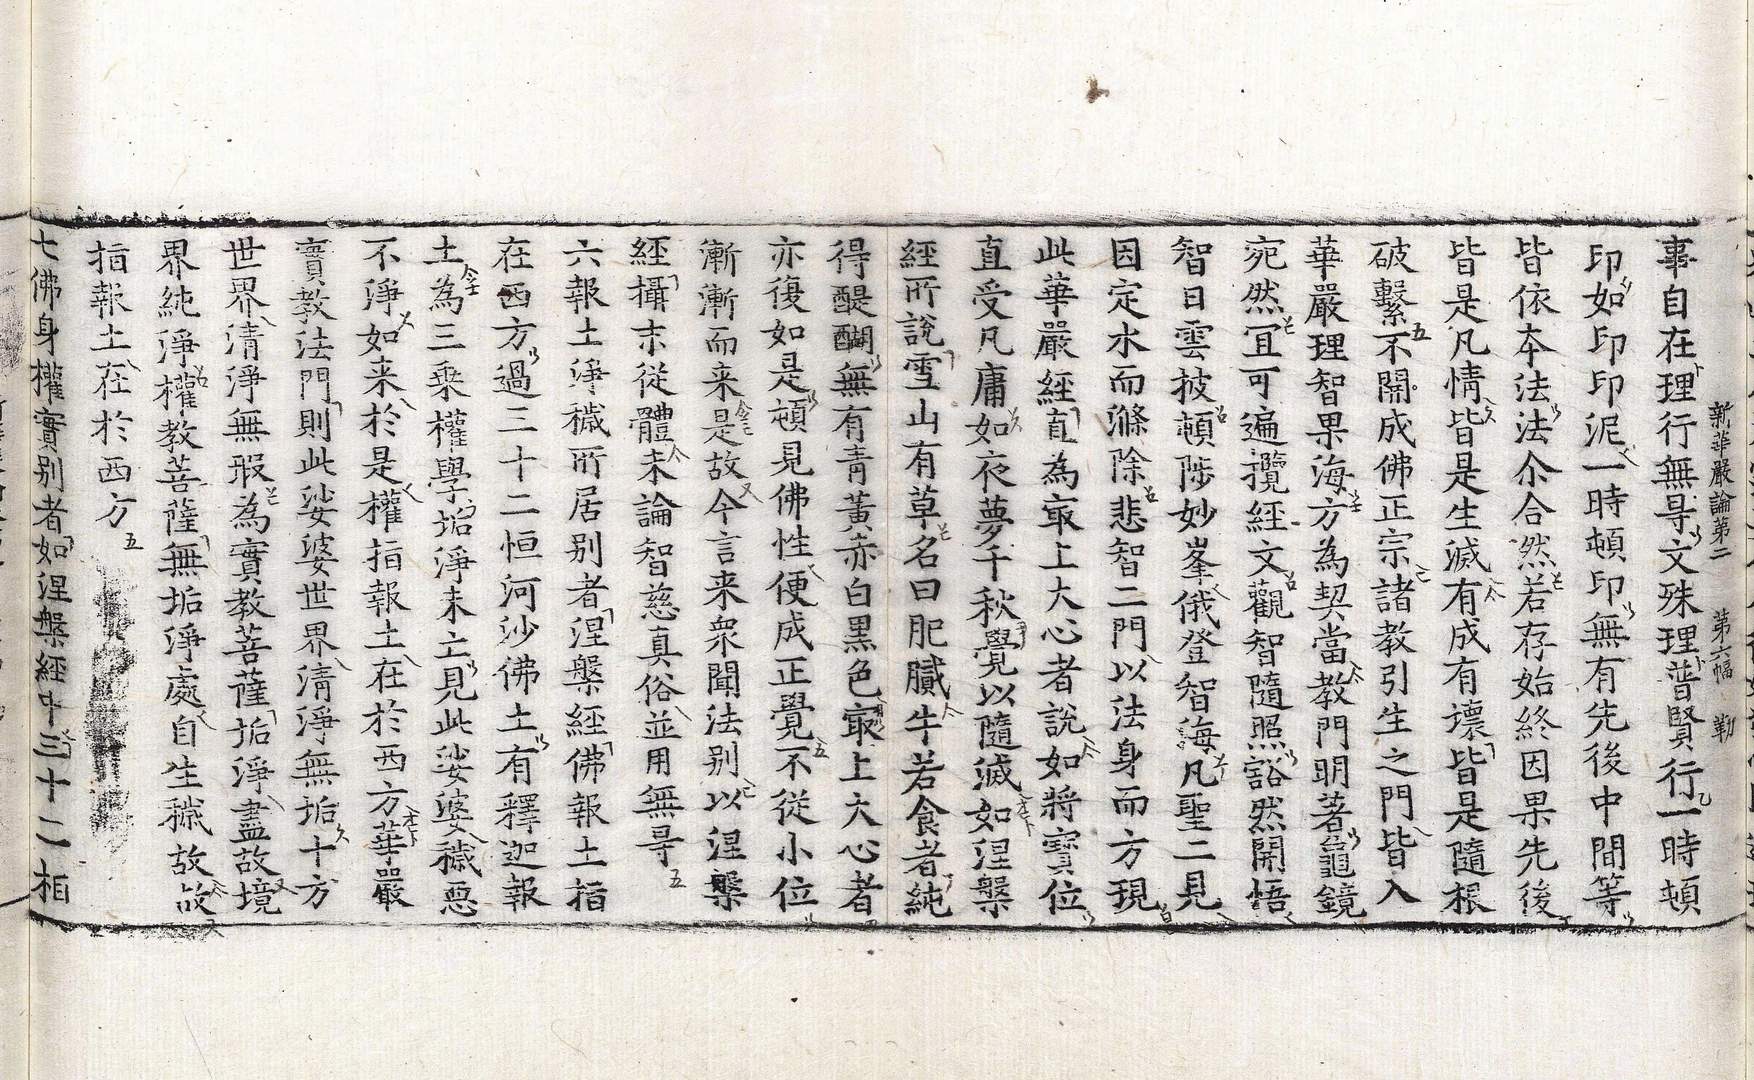 新華嚴論第二　第六幅　勒
事自在理行無㝵文殊理普賢行一時頓
印如印印泥一時頓印無有先後中間等
皆依本法法尒合然若存始終因果先後
皆是凡情皆是生滅有成有壞皆是隨根
破繫不關成佛正宗諸教引生之門皆入
華嚴理智果海方為契當教門明著龜鏡
宛然冝可遍攬經文觀智隨照豁然開悟
智日雲披頓陟妙峯俄登智海凡聖二見
因定水而滌除悲智二門以法身而方現
此華嚴經直為㝡上大心者說如將寶位
直受凡庸如夜夢千秋覺以隨滅如涅槃
經所說雪山有草名曰肥膩牛若食者純
得醍醐無有青黃赤白黑色㝡上大心者
亦復如是頓見佛性便成正覺不從小位
漸漸而来是故今言来衆聞法别以涅槃
經攝末從體未論智慈真俗並用無㝵
六報土淨穢所居别者涅槃經佛報土指
在西方過三十二恒河沙佛土有釋迦報
土為三乘權學垢淨未立見此娑婆穢惡
不淨如来於是權指報土在於西方華嚴
實教法門則此娑婆世界清淨無垢十方
世界清淨無瑕為實教菩薩垢淨盡故境
界純淨權教菩薩無垢淨處自生穢故故
指報土在於西方
七佛身權實别者如涅槃經中三十二相